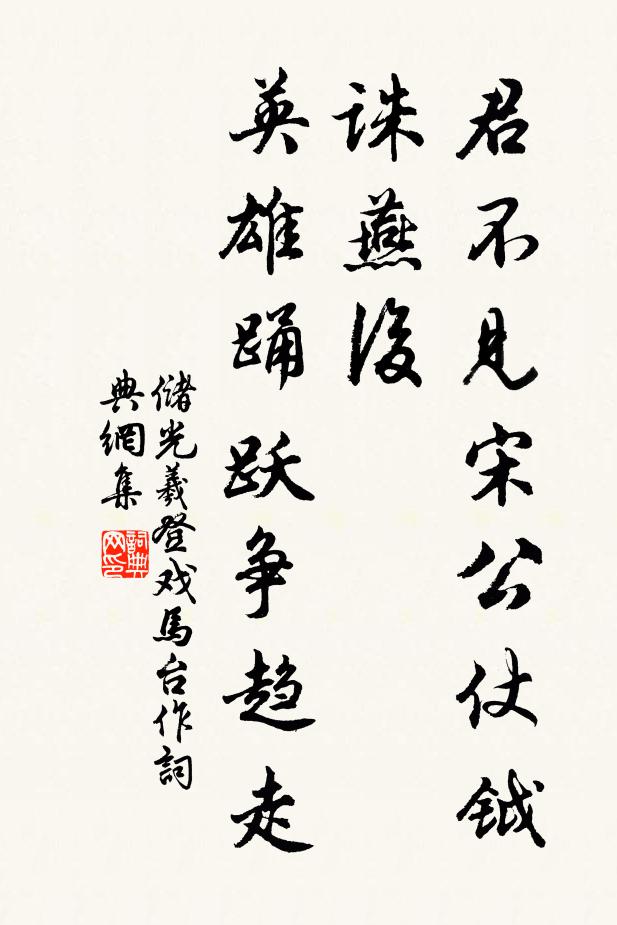 君不見宋公仗鉞
誅燕後
英雄踊跃争趋走
儲光羲登戏馬台作詞
典網集
詞典
网印